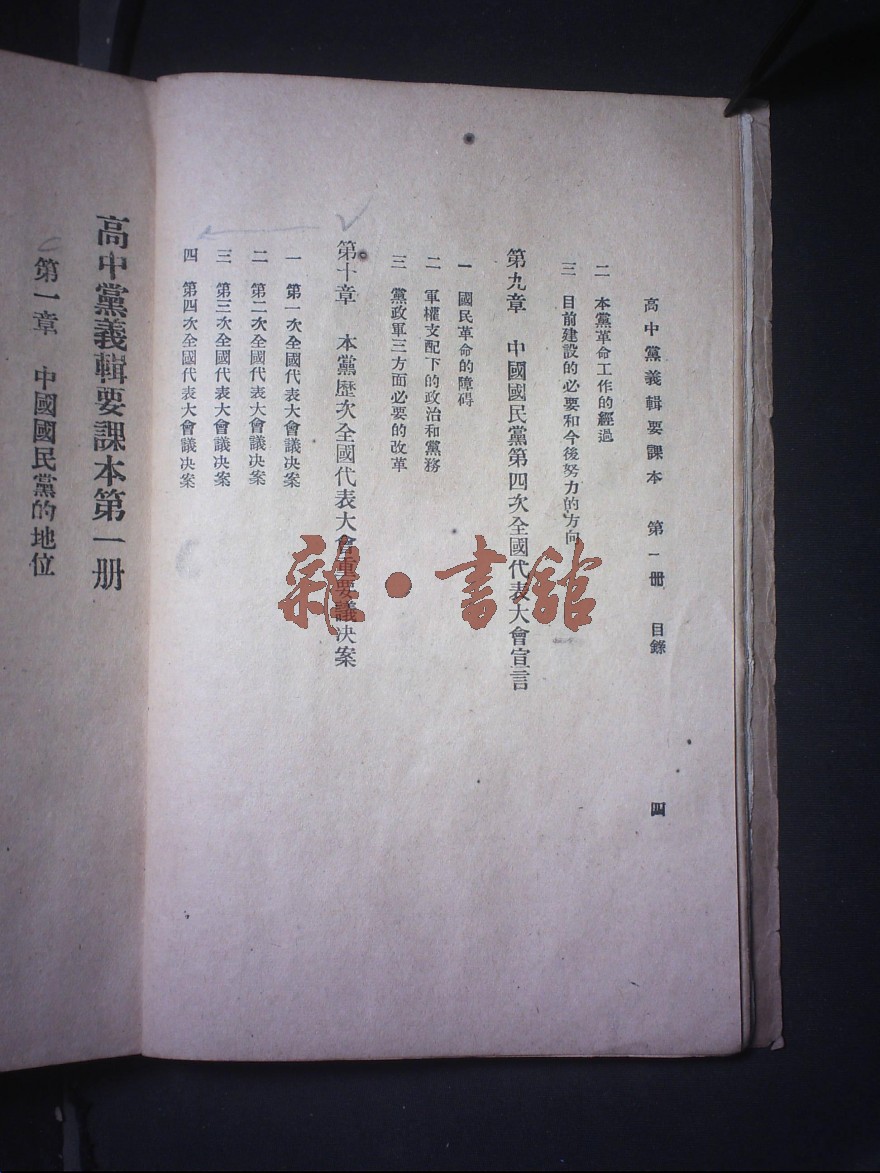 高中黨義輯要課本 第一冊 目錄 四
二 本黨革命工作的經過
三 目前建設的必要和今後努力的方向
第九章 中國國民黨第四次全國代表大會宣言
一 國民革命的障碍
二 軍權支配下的政治和黨務
三 黨政軍三方面必要的改革
第十章 本黨歷次全國代表大會重要議决案
一 第一次全國代表大會議决案
二 第二次全國代表大會議决案
三 第三次全國代表大會議决案
四 第四次全國代表大會議决案
高中黨義輯要課本第一册
第一章 中國國民黨的地位
雜·書館